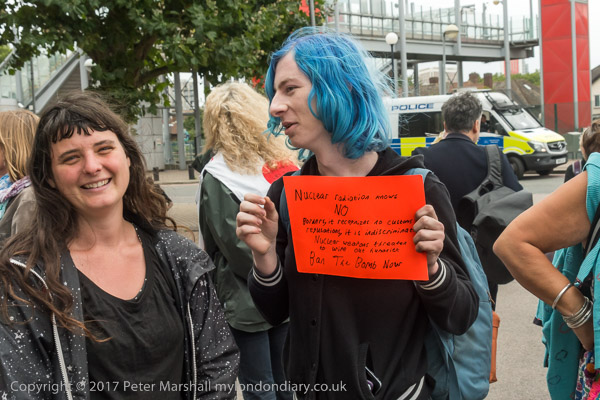 POLICE
Nuclear radiation knows
NO
Borders, it recognises no customs
regulations, it is indiscriminate
Nuclear weapons threaten
to wipe out humanity
Ban The Bomb Now
Copyright © 2017 Peter Marshall mylondondiary.co.uk